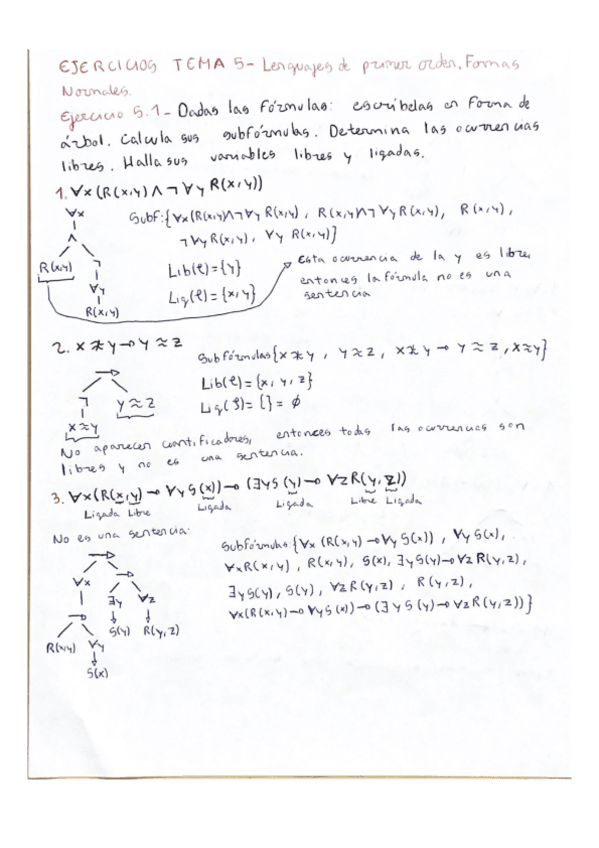 EJERCICIOS TEMA 5- Lenguajes de primer orden. Formas
Normales.
Ejercicio 5.1- Dadas las fórmulas: escribelas en forma de
árbol. Calcula sus subfórmulas. Determina las ocurrencias
libres. Halla sus variables libres y ligadas.
1. ∀x(R(x,y)∧¬∀yR(x,y))
∀x
∧
R(x,y)
¬
∀y
R(x,y)
Subf:{∀x(R(x,y)∧¬∀yR(x,y), R(x,y)∧¬∀yR(x,y), R(x,y),
¬∀yR(x,y), ∀yR(x,y)}
Lib(φ)={y}
Lig(φ)={x,y}
Esta ocurrencia de la y es libre,
entonces la fórmula no es una
sentencia
2. x≉y→y≈z
→
¬
y≈z
x≈y
Subfórmulas{x≉y, y≈z, x≉y→y≈z, x≈y}
Lib(φ)={x,y,z}
Lig(φ)={}=∅
No aparecen cuantificadores, entonces todas las ocurrencias son
libres y no es una sentencia.
3. ∀x(R(x,y)→∀yS(x))→(∃yS(y)→∀zR(y,z))
Ligada Libre Ligada Ligada Libre Ligada
No es una sentencia:
→
∀x
→
∃y
∀z
→
S(y)
R(y,z)
R(x,y)
∀y
S(x)
Subfórmulas{∀x(R(x,y)→∀yS(x)), ∀yS(x),
∀xR(x,y), R(x,y), S(x), ∃yS(y)→∀zR(y,z),
∃yS(y), S(y), ∀zR(y,z), R(y,z),
∀x(R(x,y)→∀yS(x))→(∃yS(y)→∀zR(y,z))}